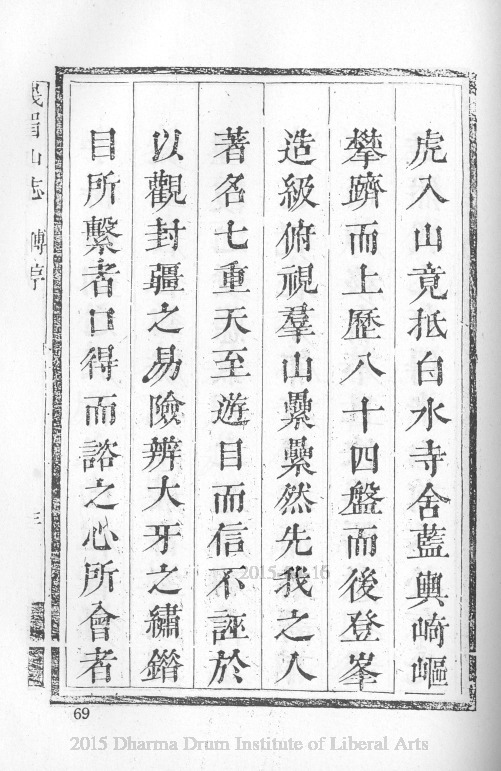 虎入山竟抵白水寺舍藍輿崎嶇
攀躋而上歷八十四盤而後登峯
造級俯視羣山纍纍然先我之人
著名七重天至遊目而信不誣於
以觀封疆之易險辨大牙之繡錯
目所繫者口得而諮之心所會者
峨眉山志 傅序
三
69
2015 Dharma Drum Institute of Liberal Arts